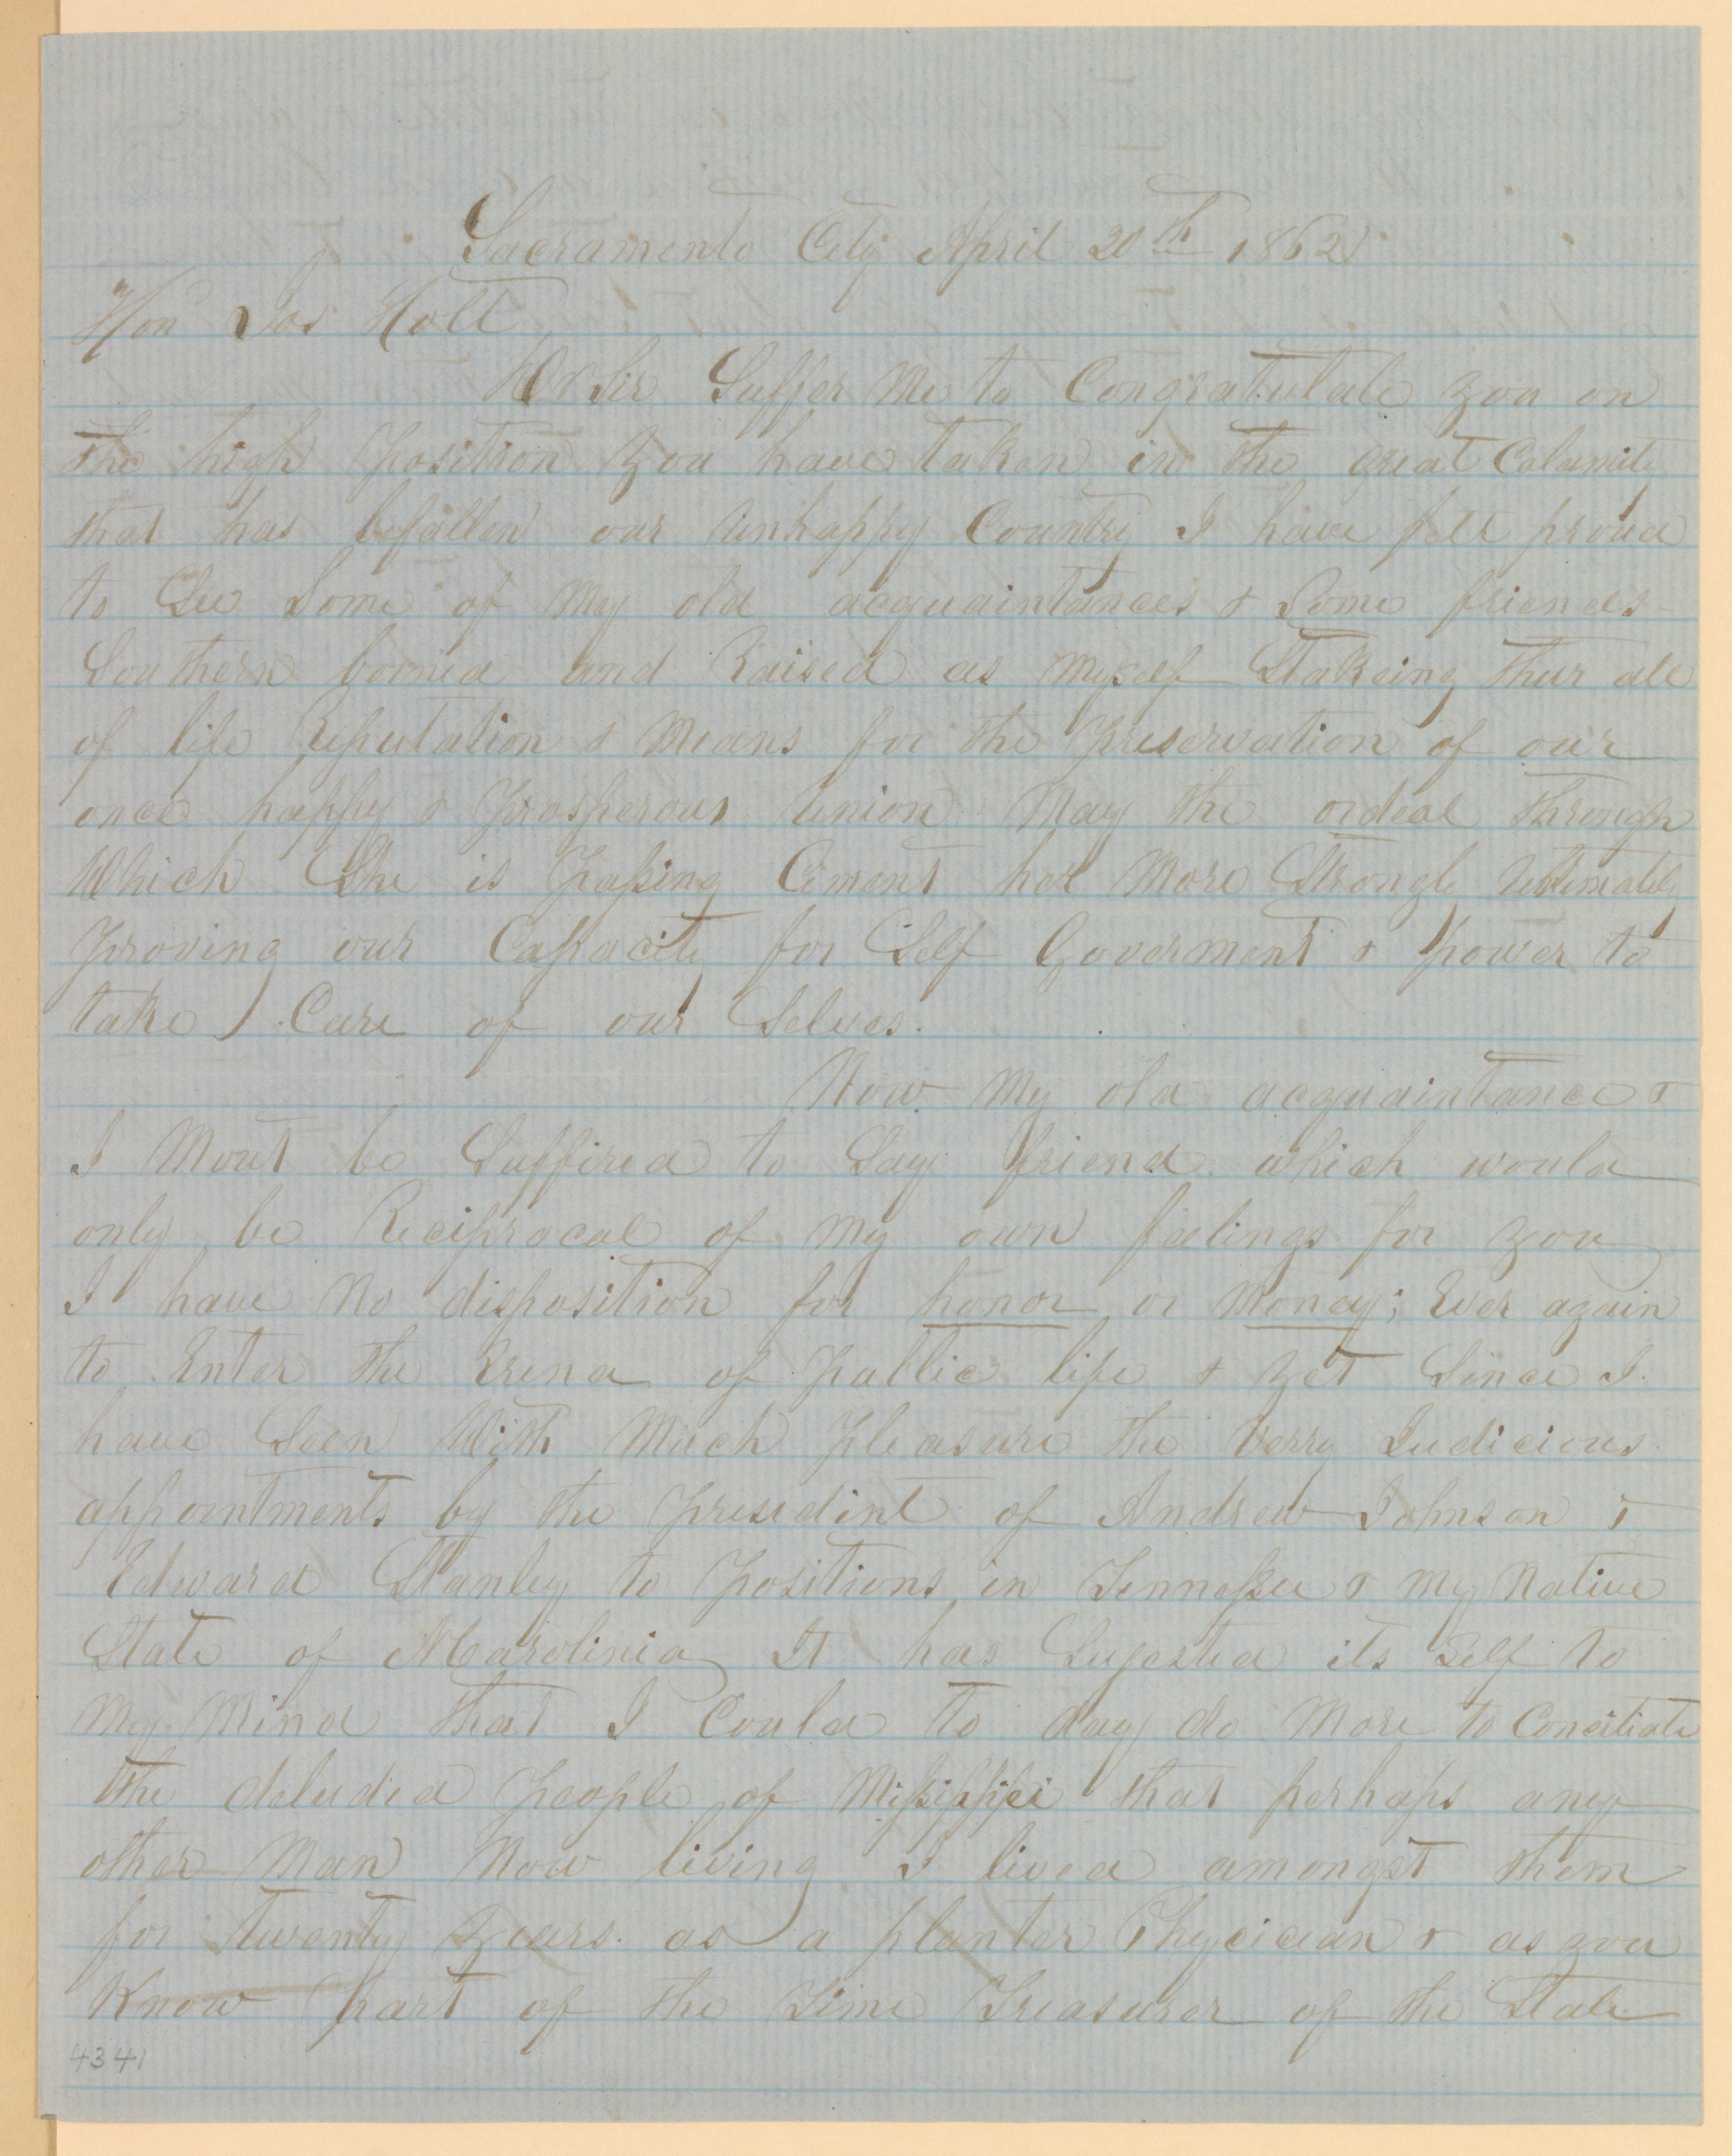 Sacramento City April 20th 1862
Hon Jos Holt
Dr Sir Suffer Me to Congratulate you on
the high position you have taken in the great Calamity
that has befallen our unhappy Country I have felt proud
to See Some of My old acquaintances & Some friends
Southern borned and Raised as Myself Stakeing their all
of life Reputation & Means for the Preservation of our
once happy & Prosperous Union May the ordeal through
Which She is Passing Cement her More Strongly Ultimately
Proving our Capacity for Self Goverment & power to
take Care of our Selves.
Now My old acquaintance &
I Mout be Suffired to Say friend which would
only be Reciprocal of My own feelings for you
I have No disposition for honor or Money; Ever again
to Enter the Erena of public life & yet Since I
have Seen With Much Pleasure the Verry Judicious
appointments by the Presedint of Andrew Johnson &
Edward Stanley to Positions in Tennessee & My Native
State of NCarolinia It has Sugested its Self to
My Mind that I Could to day do More to Conciliate
the deluded People of Mississippi that perhaps any
other Man Now living I lived amongst them
for twenty years. as a planter Physician & as you
Know part of the Time Treasurer of the State
4341